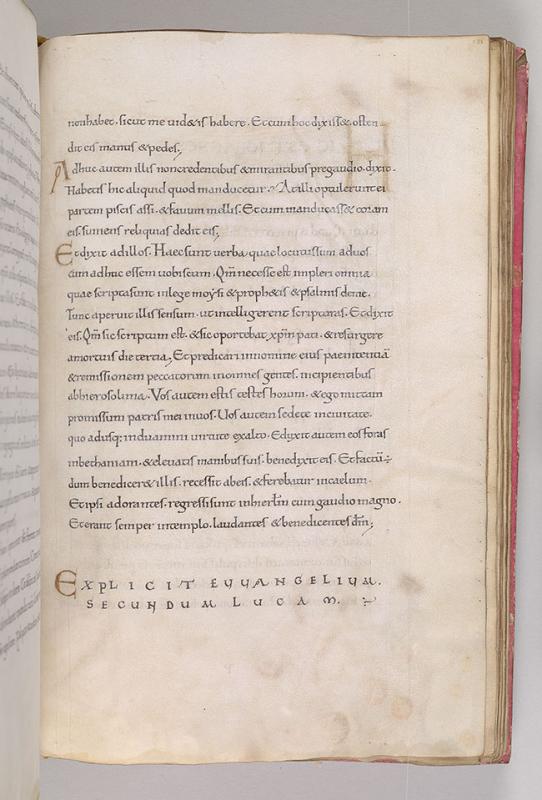 non habet. sicut me uid&is habere. Et cum hoc dixiss& osten
dit eis manus & pedes;
Adhuc autem illis non credentibus & mirantibus pre gaudio. dixit.
Habetis hic aliquid quod manducetur. At illi optulerunt ei
partem piscis assi. & fauum mellis. Et cum manducass& coram
eis. sumens reliquias dedit eis;
Et dixit ad illos. Haec sunt uerba. quae locutus sum ad uos
cum adhuc essem uobiscum. Qm̄ necesse est impleri omnia
quae scripta sunt in lege moysi & proph&is & psalmis de me.
Tunc aperuit illis sensum. ut intellegerent scripturas. Et dixit
eis. Qm̄ sic scriptum est. & sic oportebat xp̄m pati. & resurgere
a mortuis die tertia; Et predicari in nomine eius paenitentiā
& remissionem peccatorum in omnes gentes. incipientibus
ab hierosolima. Vos autem estis testes horum. & ego mittam
promissum patris mei in uos. Uos autem sedete in ciuitate.
quo adusq; induamini uirtute ex alto. Eduxit autem eos foras
in bethaniam. & eleuatis manibus suis. benedixit eis. Et factū ÷
dum benedicer& illis. recessit ab eis. & ferebatur in caelum.
Et ipsi adorantes. regressi sunt in hierl̄m cum gaudio magno.
Et erant semper in templo. laudantes & benedicentes dm̄;
EXPLICIT EUUANGELIUM.
SECUNDUM LUCAM.